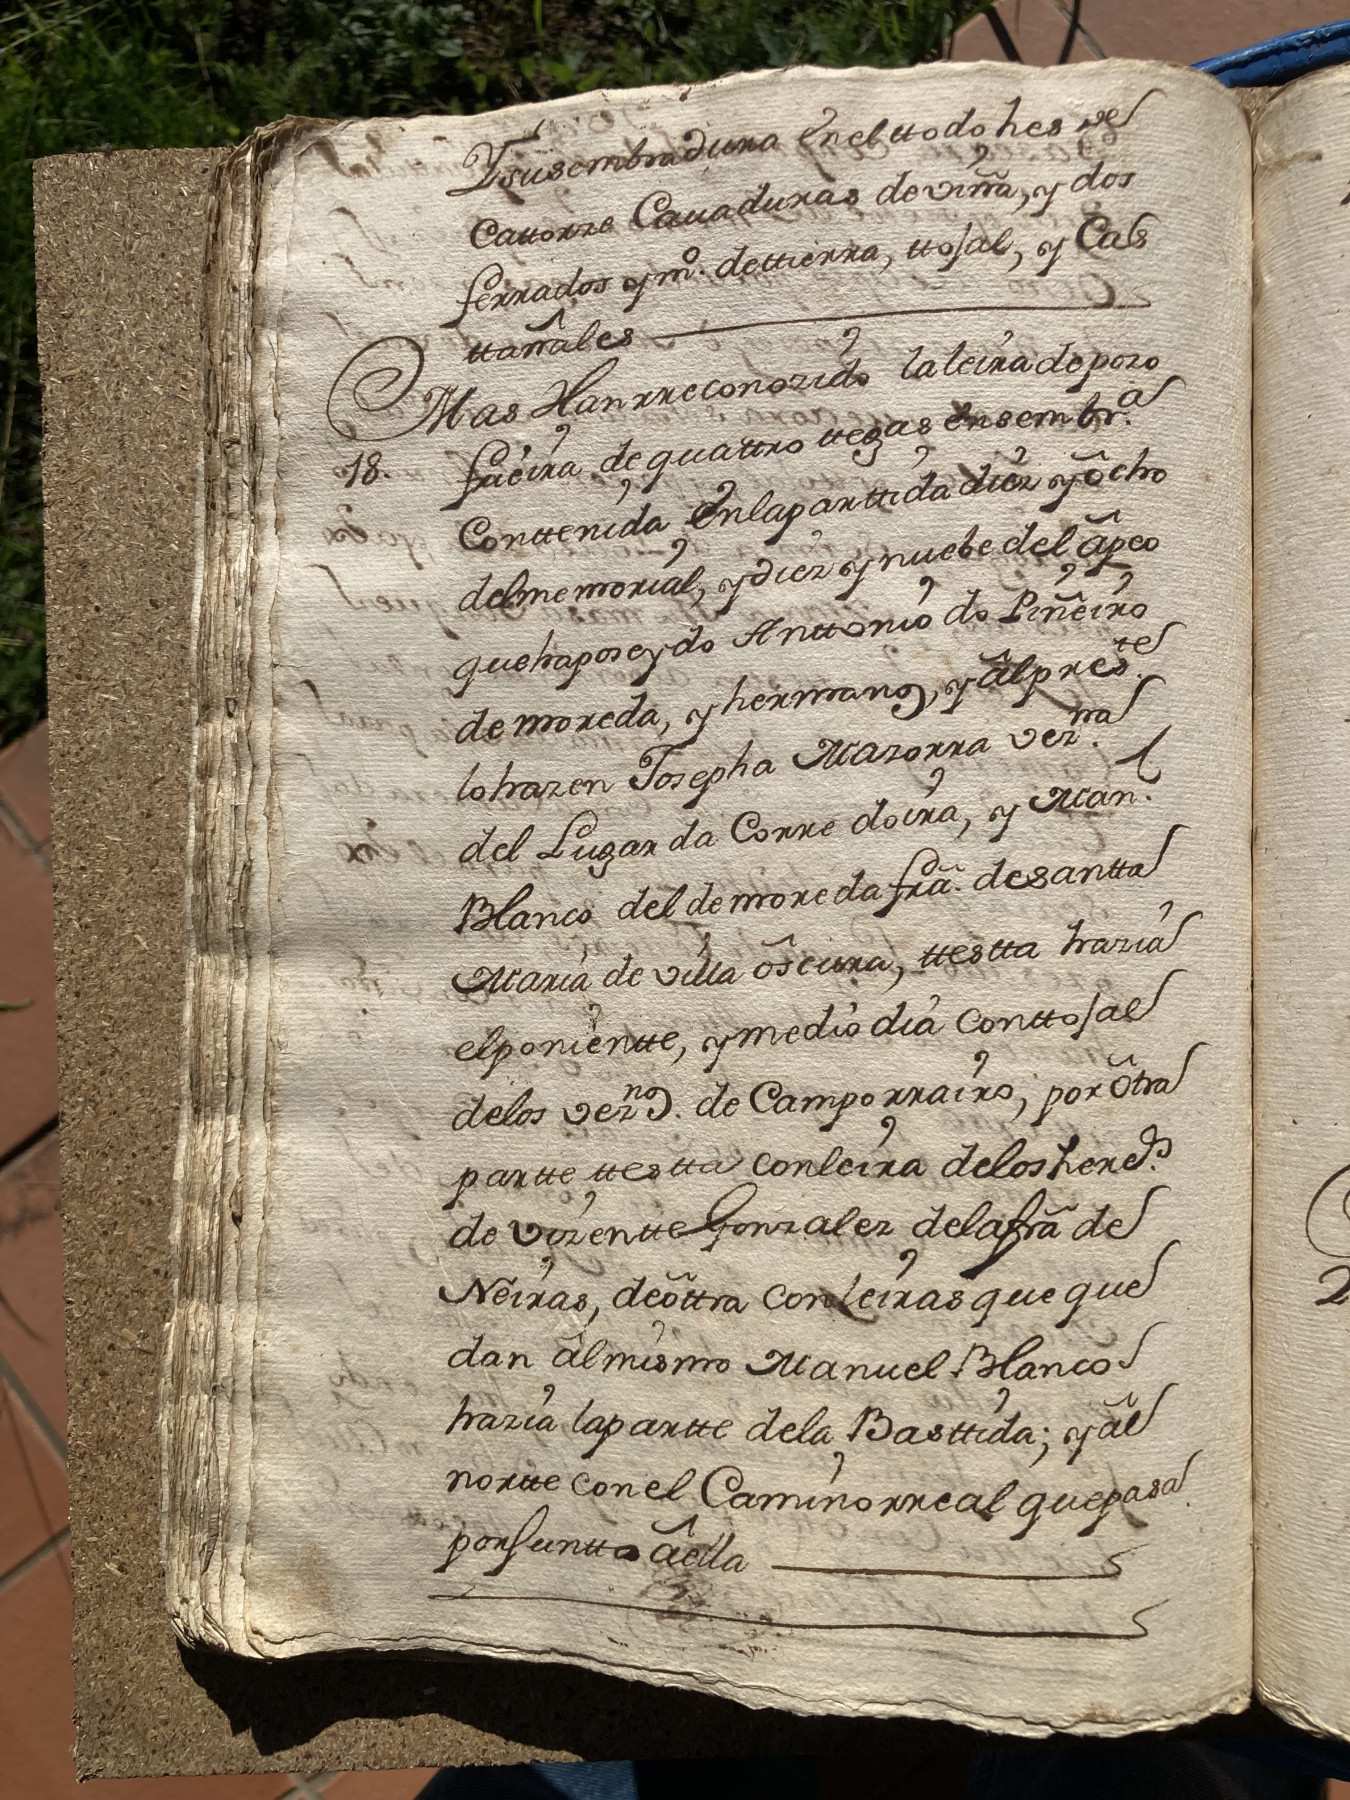 Y su sembradura en el ttodo hes de
Cattorze Cauaduras de viña, y dos
ferrados y mº. de ttierra, ttojal, y Cas
ttañales
Mas Han rreconozido la leira do pozo
18. fáeira de quattro ttegas en sembrª.
Conttenida en la parttida diez y ôcho
del memorial, y diez y nuebe del âpeo
que ha poseydo Anttonio do Piñeiro
de moreda, y hermanos, y âl presᵗᵉ.
lo hazen Josepha Mazorra vezⁿᵃ.
del Lugar da Corredoira, y Manˡ.
Blanco del de moreda frâ. de santta
Maria de villa ôscura, ttestta hazia
el ponientte, y medio dia con ttojal
de los vezⁿᵒˢ. de Camporrairo, por ôtra
partte ttestta con leira de los heredˢ.
de vizentte Gonzalez de la frâ de
Neiras, de ôttra con leiras que que
dan âl mismo Manuel Blanco
hazia la partte de la Basttida; y âl
nortte con el Camino rreal que pasa
por juntto â ella
2